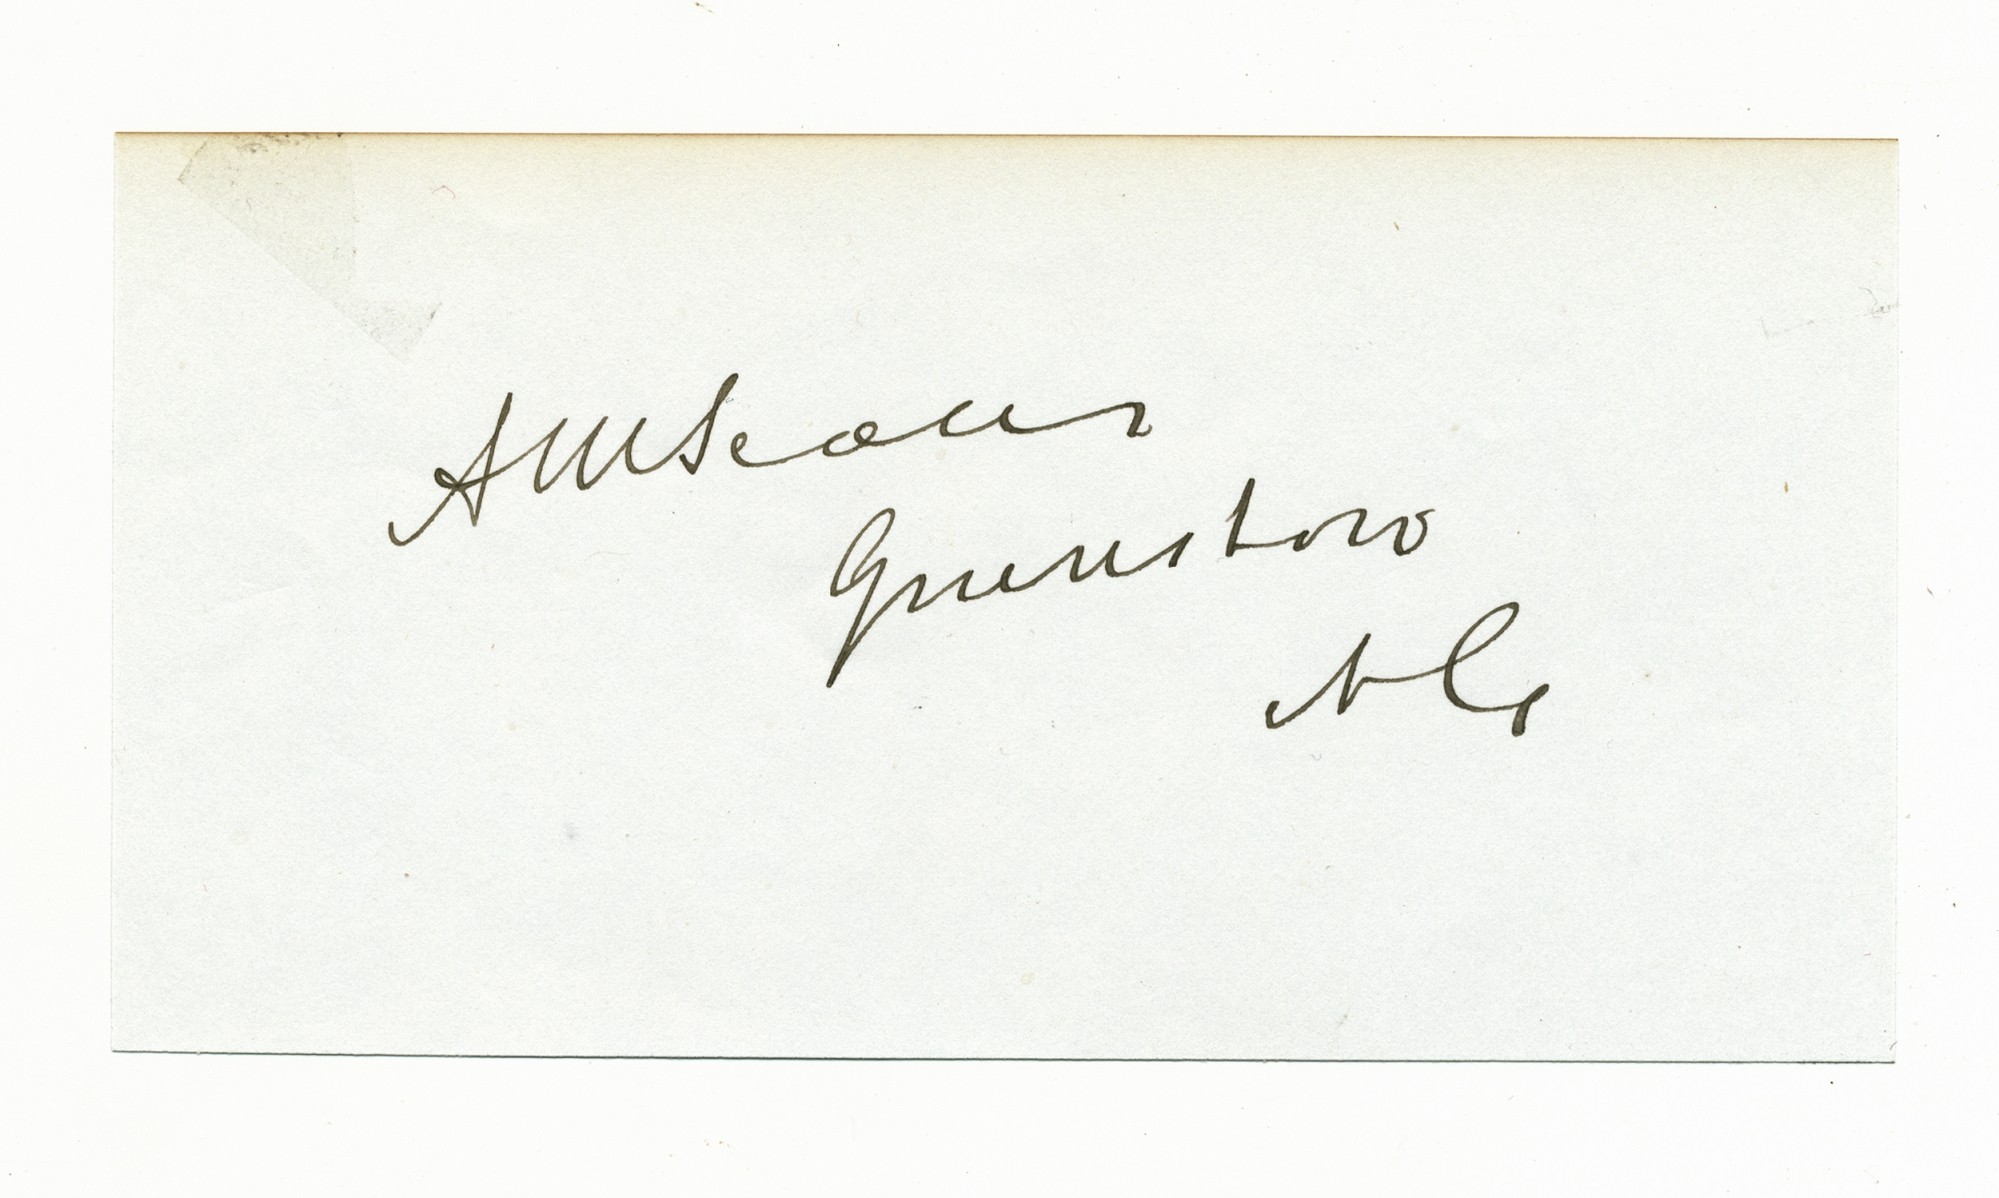 A M Scales
Greensboro
N C